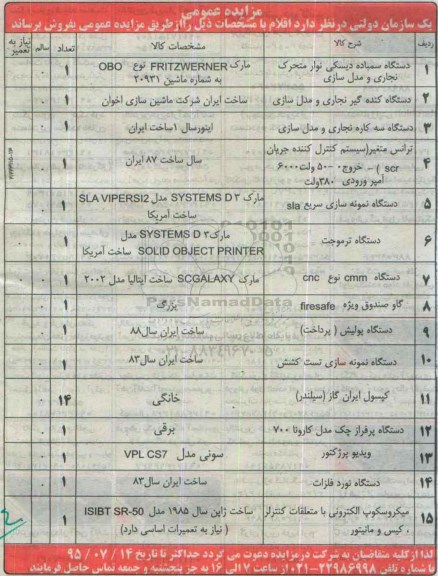 مزایده عمومی
یک سازمان دولتی درنظر دارد اقلام با مشخصات ذیل را ازطریق مزایده عمومی بفروش برساند
ردیف شرح کالا مشخصات کالا تعداد سالم نیاز به تعمیر
۱ دستگاه سمباده دیسکی نوار متحرک نجاری و مدل سازی مارک FRITZWERNER نوع OBO به شماره ماشین ۲۰۹۳۱ ۱ ۱ ۰
۲ دستگاه کنده گیر نجاری و مدل سازی ساخت ایران شرکت ماشین سازی اخوان ۱ ۱ ۰
۳ دستگاه سه کاره نجاری و مدل سازی اینورسال ۱ ساخت ایران ۱ ۱ ۰
۴ ترانس متغیر(سیستم کنترل کننده جریان scr ) – خروج۰ -۵۰ ولت۶۰۰۰ آمپر ورودی ۳۸۰ولت سال ساخت ۸۷ ایران ۱ ۱ ۰
۵ دستگاه نمونه سازی سریع sla مارک SYSTEMS D ۳ مدل SLA VIPERSI2 ساخت آمریکا ۱ ۱ ۰
۶ دستگاه ترموجت مارک۳ SYSTEMS D مدل SOLID OBJECT PRINTER ساخت آمریکا ۱ ۱
۷ دستگاه cmm نوع cnc مارک SCGALAXY ساخت ایتالیا مدل ۲۰۰۲ ۱ ۱
۸ گاو صندوق ویژه firesafe بزرگ ۱ ۱
۹ دستگاه پولیش ( پرداخت) ساخت ایران سال۸۸ ۱ ۱
۱۰ دستگاه نمونه سازی تست کشش ساخت ایران سال۸۳ ۱ ۱
۱۱ کپسول ایران گاز (سیلندر) خانگی ۱۴ ۱۴
۱۲ دستگاه پرفراژ چک مدل کاروتا ۷۰۰ برقی ۱ ۱ ۰
۱۳ ویدیو پرژکتور سونی مدل VPL CS7 ۱ ۱
۱۴ دستگاه نورد فلزات ساخت ایران سال۸۳ ۱ ۱ ۰
۱۵ میکروسکوپ الکترونی با متعلقات کنترلر ، کیس و مانیتور ساخت ژاپن سال ۱۹۸۵ مدل ISIBT SR-50 ( نیاز به تعمیرات اساسی دارد) ۱
ParsNamadData
لذا از کلیه متقاضیان به شرکت درمزایده دعوت می گردد حداکثر تا تاریخ ۱۴ / ۰۷ / ۹۵
با شماره تلفن ۲۲۹۸۶۹۹۸-۰۲۱ از ساعت ۷ الی ۱۶ به جز پنجشنبه و جمعه تماس حاصل فرمایند